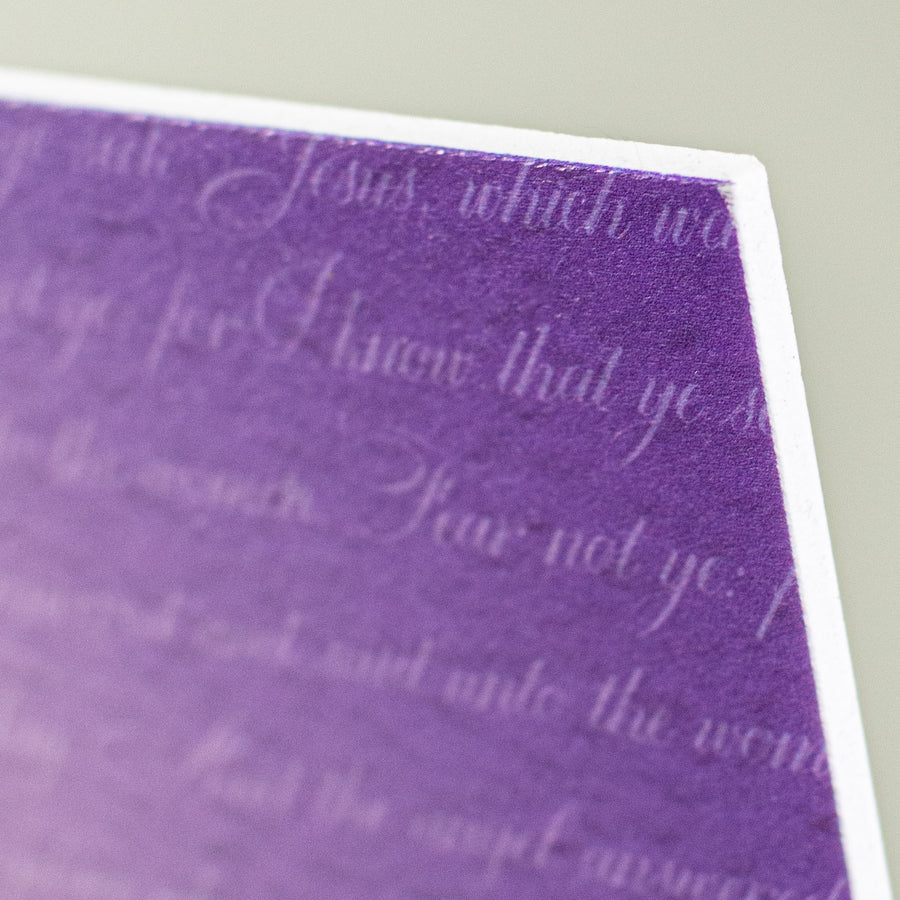 Jesus, which wa
ye for I know that ye s
the women. Fear not ye:
and said unto the wom
And the angel answered